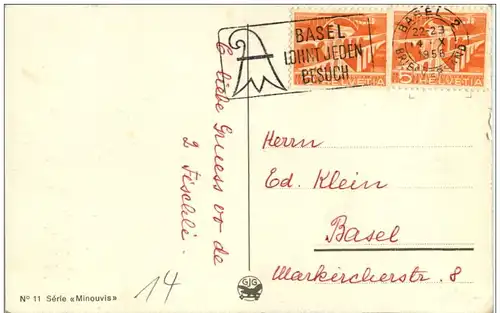 BASEL
LOHNT JEDEN
BESUCH
BASEL 2
22-23
BRIEFVERSAND
HELVETIA
5 HELVETIA
E liebe Gruess vo de
2 Fischli.
Herrn
Ed. Klein
Basel
Markircherstr. 8
14
Nº 11 Série «Minouvis»
GJG